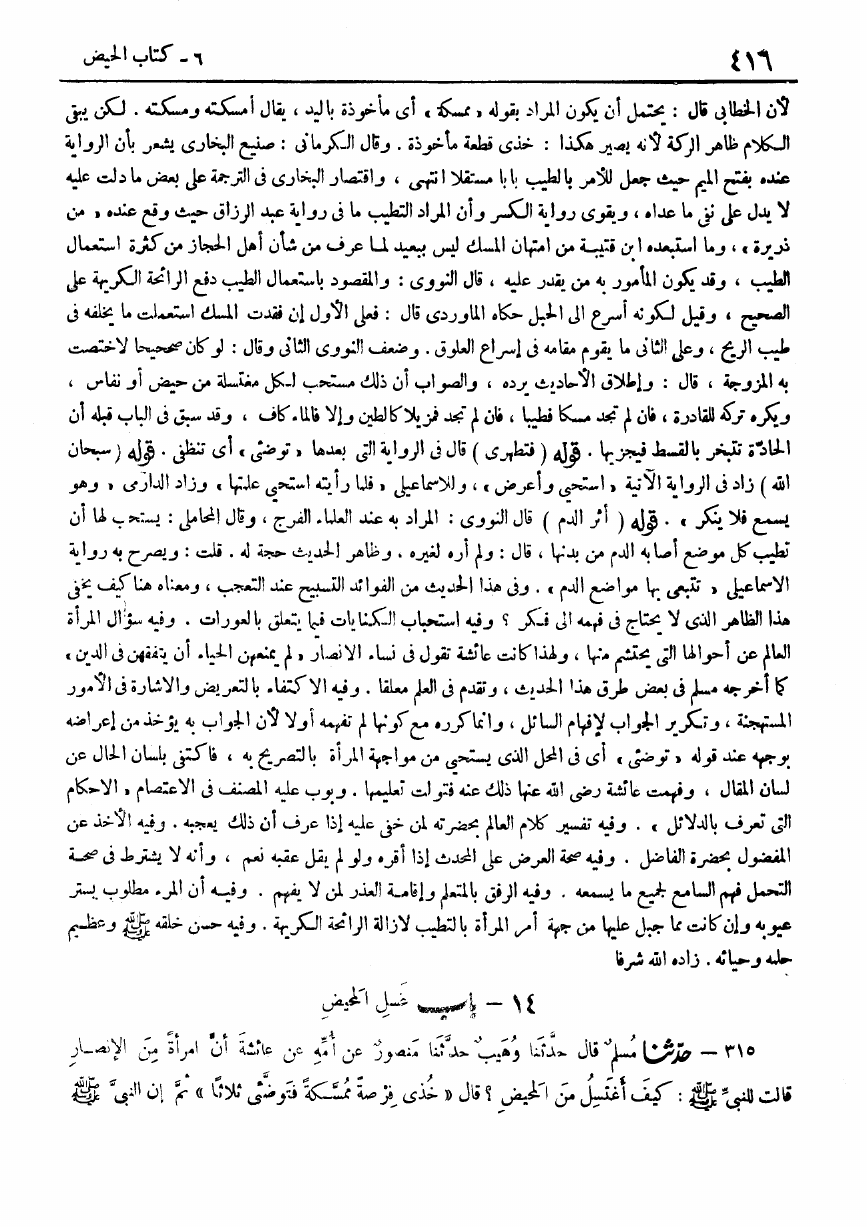 ٤١٦
٦ - كتاب الحيض
لأن الخطابى قال : يحتمل أن يكون المراد بقوله « ممسكة » أى مأخوذة باليد ، يقال أمسكته ومسكته . لكن يبقى
الكلام ظاهر الركة لأنه يصير هكذا : خذى قطعة مأخوذة . وقال الكرمانى : صنيع البخارى يشعر بأن الرواية
عنده بفتح الميم حيث جعل للأمر بالطيب بابا مستقلا انتهى ، واقتصار البخارى فى الترجمة على بعض ما دلت عليه
لا يدل على نفى ما عداه ، ويقوى رواية الكسر وأن المراد التطيب ما فى رواية عبد الرزاق حيث وقع عنده « من
ذريرة » ، وما استبعده ابن قتيبة من امتهان المسك ليس ببعيد لما عرف من شأن أهل الحجاز من كثرة استعمال
الطيب ، وقد يكون المأمور به من يقدر عليه ، قال النووى : والمقصود باستعمال الطيب دفع الرائحة الكريهة على
الصحيح ، وقيل لكونه أسرع الى الحبل حكاه الماوردى قال : فعلى الأول إن فقدت المسك استعملت ما يخلفه فى
طيب الريح ، وعلى الثانى ما يقوم مقامه فى إسراع العلوق . وضعف النووى الثانى وقال : لو كان صحيحا لاختصت
به المزوجة ، قال : وإطلاق الأحاديث يرده ، والصواب أن ذلك مستحب لكل مغتسلة من حيض أو نفاس ،
ويكره تركه للقادرة ، فان لم تجد مسكا فطيبا ، فان لم تجد فمزيلا كالطين وإلا فالماء كاف ، وقد سبق فى الباب قبله أن
الحادّة تتبخر بالقسط فيجزيها . قوله ( فتطهرى ) قال فى الرواية التى بعدها « توضئى » أى تنظفى . قوله ( سبحان
الله ) زاد فى الرواية الآتية « استحيى وأعرض » ، وللاسماعيلى « فلما رأيته استحيى علمتها » وزاد الدارمى « وهو
يسمع فلا ينكر » . قوله ( أثر الدم ) قال النووى : المراد به عند العلماء الفرج ، وقال المحاملى : يستحب لها أن
تطيب كل موضع أصابه الدم من بدنها ، قال : ولم أره لغيره ، وظاهر الحديث حجة له . قلت : ويصرح به رواية
الاسماعيلى « تتبعى بها مواضع الدم » . وفى هذا الحديث من الفوائد التسبيح عند التعجب ، ومعناه هنا كيف يخفى
هذا الظاهر الذى لا يحتاج فى فهمه الى فكر ؟ وفيه استحباب الكنايات فيما يتعلق بالعورات . وفيه سؤال المرأة
العالم عن أحوالها التى يحتشم منها ، ولهذا كانت عائشة تقول فى نساء الانصار « لم يمنعهن الحياء أن يتفقهن فى الدين »
كما أخرجه مسلم فى بعض طرق هذا الحديث ، وتقدم فى العلم معلقا . وفيه الاكتفاء بالتعريض والاشارة فى الأمور
المستهجنة ، وتكرير الجواب لإفهام السائل ، وانما كرره مع كونها لم تفهمه أولا لأن الجواب به يؤخذ من إعراضه
بوجهه عند قوله « توضئى » أى فى المحل الذى يستحيى من مواجهة المرأة بالتصريح به ، فاكتفى بلسان الحال عن
لسان المقال ، وفهمت عائشة رضى الله عنها ذلك عنه فتولت تعليمها . وبوب عليه المصنف فى الاعتصام « الاحكام
التى تعرف بالدلائل » . وفيه تفسير كلام العالم بحضرته لمن خفى عليه إذا عرف أن ذلك يعجبه . وفيه الأخذ عن
المفضول بحضرة الفاضل . وفيه صحة العرض على المحدث إذا أقره ولو لم يقل عقبه نعم ، وأنه لا يشترط فى صحة
التحمل فهم السامع لجميع ما يسمعه . وفيه الرفق بالمتعلم وإقامة العذر لمن لا يفهم . وفيه أن المرء مطلوب بستر
عيوبه وإن كانت مما جبل عليها من جهة أمر المرأة بالتطيب لازالة الرائحة الكريهة . وفيه حسن خلقه ﷺ وعظيم
حلمه وحيائه . زاده الله شرفا
١٤ - باب غَسلِ المَحيضِ
٣١٥ - حدّثنا مُسلمٌ قال حدَّثَنا وُهَيبٌ حدَّثَنا مَنصورٌ عن أُمِّهِ عن عائشةَ أنَّ امرأةً مِنَ الإنصارِ
قالت للنبىِّ ﷺ : كيفَ أَغتَسِلُ منَ المَحيضِ ؟ قال « خُذى فِرْصةً مُمَسَّكةً فَتَوضَّئى ثلاثًا » ثمَّ إن النبىَّ ﷺ